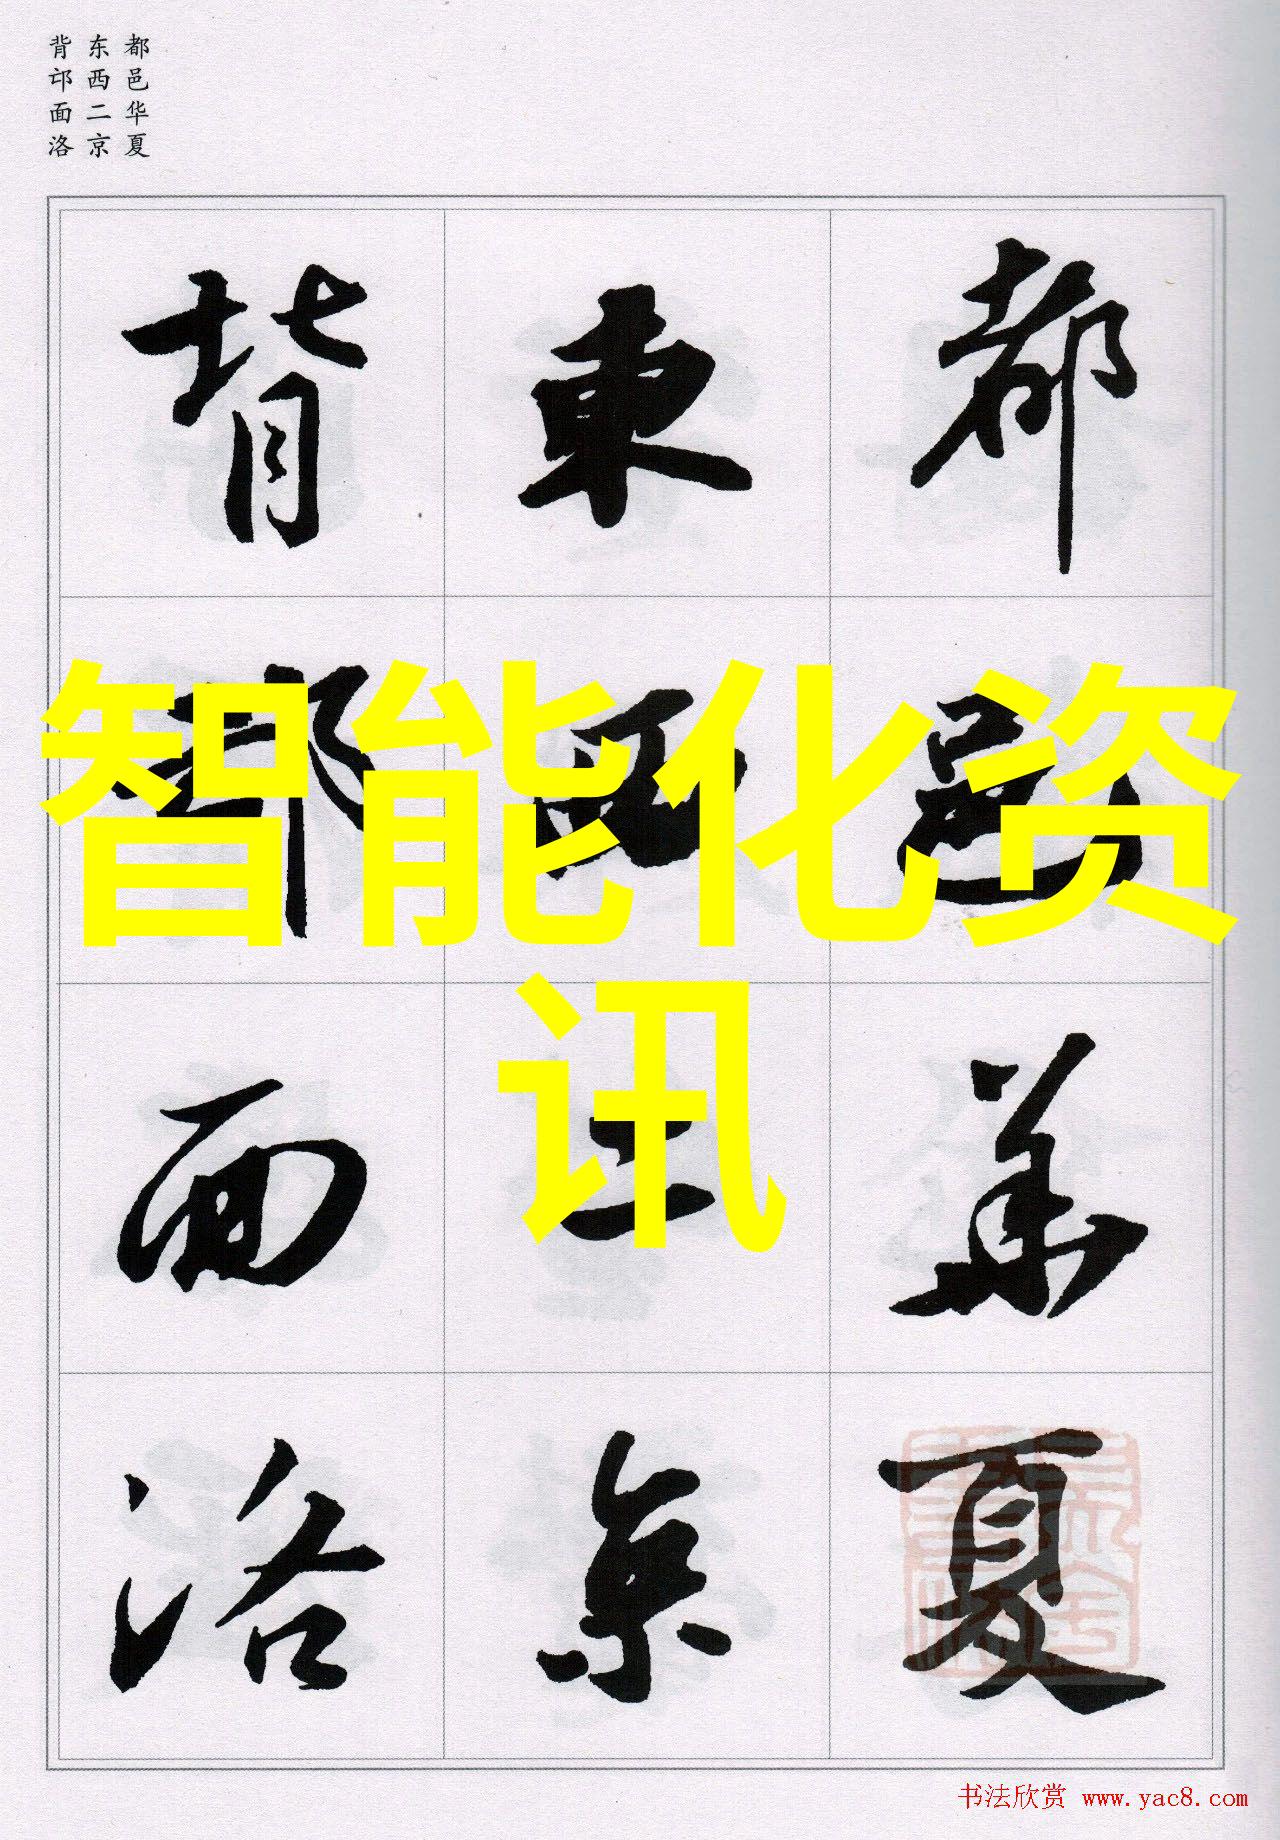 都邑华夏
东西二京
背邙面洛
都邑華夏
東西二京
背邙面洛
智能化资
讯
书法欣赏 www.yac8.com